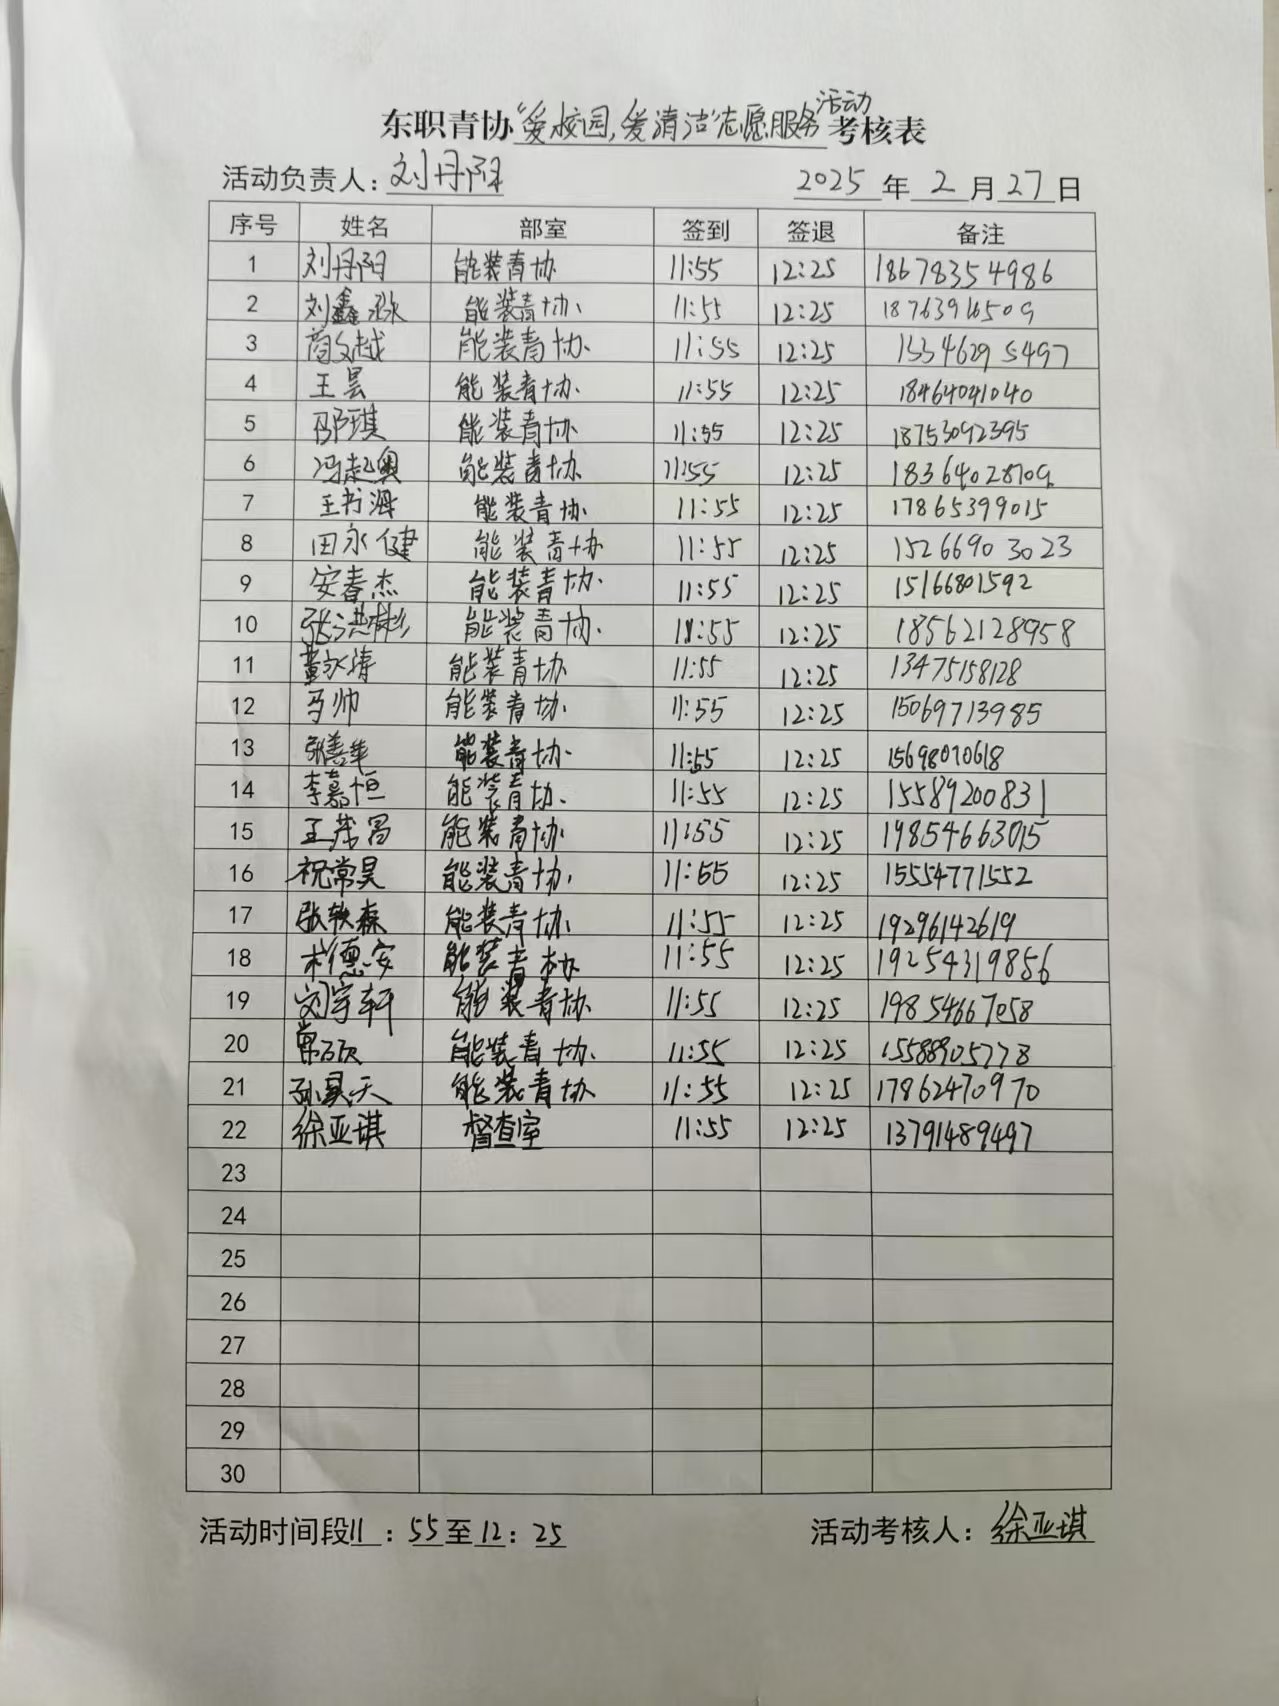 活动
东职青协“爱校园,爱清洁”志愿服务考核表
活动负责人：刘丹阳 2025年2月27日
序号 姓名 部室 签到 签退 备注
1 刘丹阳 能装青协 11:55 12:25 18678354986
2 刘鑫 能装青协. 11:55 12:25 18763916509
3 能装青协. 11:55 12:25 15346295497
4 王昙 能装青协. 11:55 12:25 18464041040
5 邵琪 能装青协. 11:55 12:25 18753092395
6 冯起奥 能装青协. 11:55 12:25 18364028709
7 王书海 能装青协. 11:55 12:25 17865399015
8 田永健 能装青协 11:55 12:25 15266903023
9 安春杰 能装青协. 11:55 12:25 15166801592
10 张洪彬 能装青协. 11:55 12:25 18562128958
11 董永涛 能装青协. 11:55 12:25 13475158128
12 马帅 能装青协. 11:55 12:25 15069713985
13 张善华 能装青协. 11:55 12:25 15698070618
14 李嘉恒 能装青协. 11:55 12:25 15589200831
15 王茂昌 能装青协. 11:55 12:25 19854663015
16 祝常昊 能装青协. 11:55 12:25 15554771552
17 张轶森 能装青协. 11:55 12:25 19296142619
18 德安 能装青协 11:55 12:25 19254319856
19 刘宇轩 能装青协. 11:55 12:25 19854667058
20 能装青协. 11:55 12:25 15588905778
21 孙昊天 能装青协 11:55 12:25 17862470970
22 徐亚琪 督查室 11:55 12:25 13791489497
23
24
25
26
27
28
29
30
活动时间段11：55至12：25 活动考核人：徐亚琪